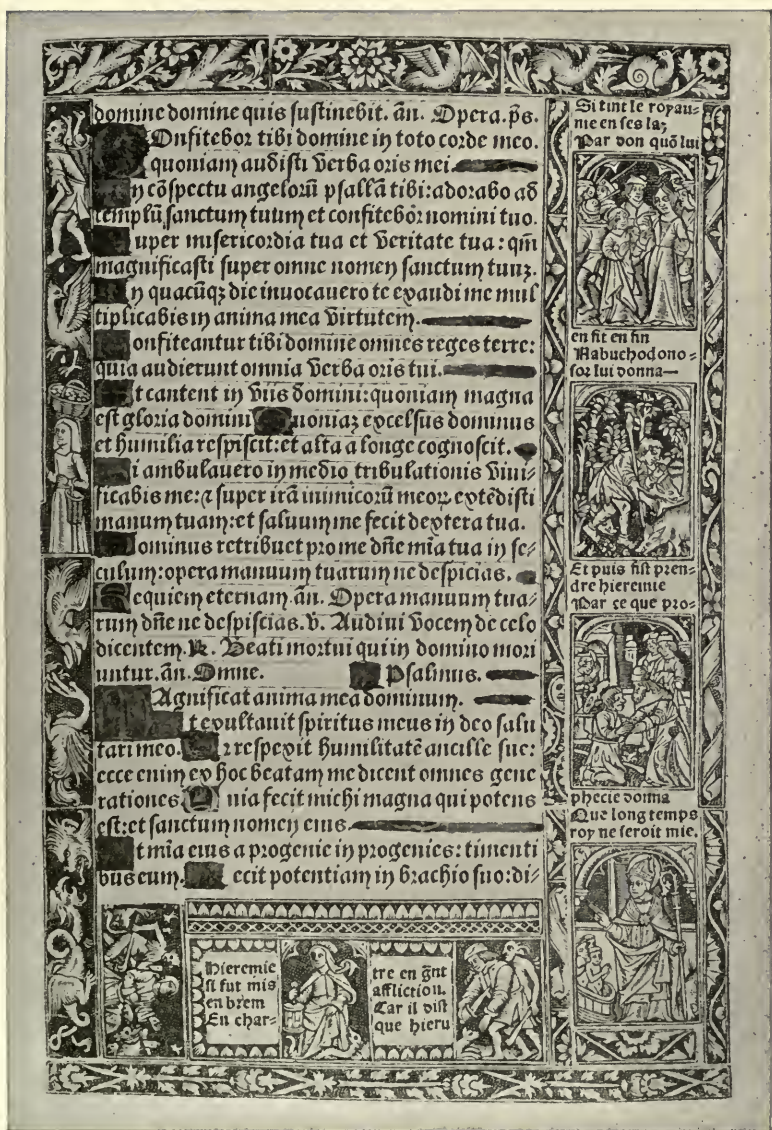 domine domine quis sustinebit. añ. Opera. ps.
Onfitebor tibi domine in toto corde meo.
quoniam audisti verba oris mei.
n cõspectu angelorũ psallã tibi: adorabo ad
templũ sanctum tuum et confitebor nomini tuo.
uper misericordia tua et veritate tua: qm̃
magnificasti super omne nomen sanctum tuuꝫ.
n quacũqꝫ die inuocauero te exaudi me mul
tiplicabis in anima mea virtutem.
onfiteantur tibi domine omnes reges terre:
quia audierunt omnia verba oris tui.
t cantent in viis domini: quoniam magna
est gloria domini uoniaꝫ excelsus dominus
et humilia respiscit: et alta a longe cognoscit.
i ambulauero in medio tribulationis viui-
ficabis me: ⁊ super irã inimicorũ meoꝝ extẽdisti
manum tuam: et saluum me fecit dextera tua.
ominus retribuet pro me dñe mĩa tua in se-
culum: opera manuum tuarum ne despicias.
equiem eternam. añ. Opera manuum tua-
rum dñe ne despiscias. v. Audiui vocem de celo
dicentem. ꝶ. Beati mortui qui in domino mori
untur. añ. Omne. Psalmus.
Agnificat anima mea dominum.
t exultauit spiritus meus in deo salu
tari meo. respexit humilitatẽ ancille sue:
ecce enim ex hoc beatam me dicent omnes gene
rationes. nia fecit michi magna qui potens
est: et sanctum nomen eius
t mĩa eius a progenie in progenies: timenti
bus eum. ecit potentiam in brachio suo: di-
Si tint le royau-
me en ses laz
Par don quõ lui
en fit en fin
Nabuchodono-
sor lui donna
Et puis fist pren-
dre hieremie
Par ce que pro-
phecie donna
Que long temps
roy ne seroit mie.
Hieremie
si fut mis
en brem
En char-
tre en g̃nt
affliction.
Car il dist
que hieru